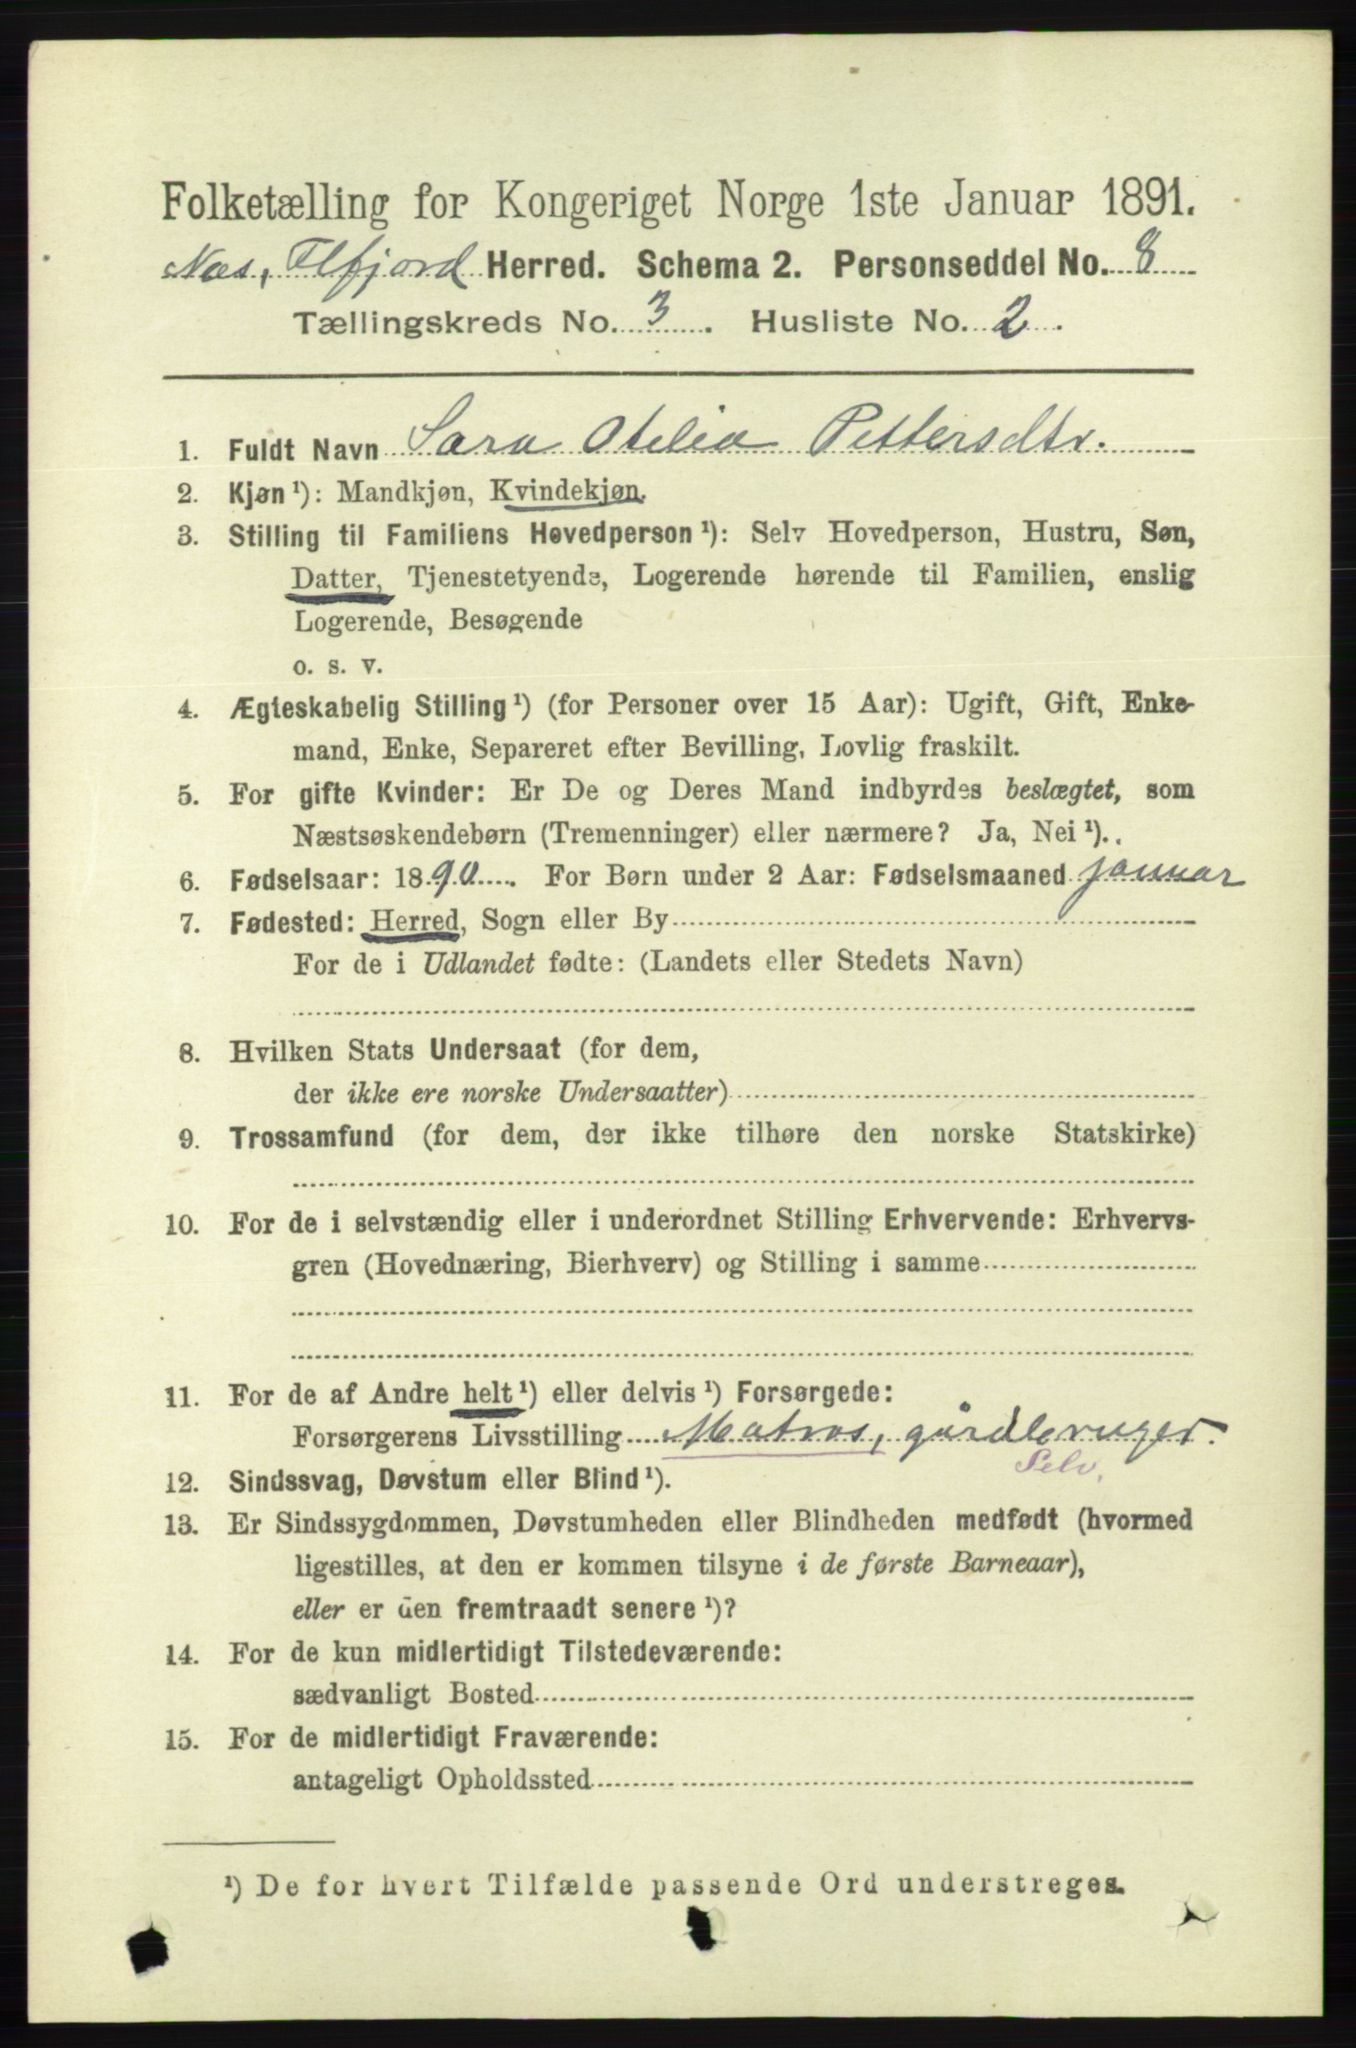 Folketælling for Kongeriget Norge 1ste Januar 1891.
Næs, Flfjord Herred. Schema 2. Personseddel No. 8
Tællingskreds No. 3. Husliste No. 2.
1. Fuldt Navn Sara Otelia Pettersdtr.
2. Kjøn ¹): Mandkjøn, Kvindekjøn.
3. Stilling til Familiens Hovedperson ¹): Selv Hovedperson, Hustru, Søn,
Datter, Tjenestetyende, Logerende hørende til Familien, enslig
Logerende, Besøgende
o. s. v.
4. Ægteskabelig Stilling ¹) (for Personer over 15 Aar): Ugift, Gift, Enke-
mand, Enke, Separeret efter Bevilling, Lovlig fraskilt.
5. For gifte Kvinder: Er De og Deres Mand indbyrdes beslægtet, som
Næstsøskendebørn (Tremenninger) eller nærmere? Ja, Nei ¹)..
6. Fødselsaar: 1890. For Børn under 2 Aar: Fødselsmaaned januar
7. Fødested: Herred, Sogn eller By
For de i Udlandet fødte: (Landets eller Stedets Navn)
8. Hvilken Stats Undersaat (for dem,
der ikke ere norske Undersaatter)
9. Trossamfund (for dem, der ikke tilhøre den norske Statskirke)
10. For de i selvstændig eller i underordnet Stilling Erhvervende: Erhvervs-
gren (Hovednæring, Bierhverv) og Stilling i samme
11. For de af Andre helt ¹) eller delvis ¹) Forsørgede:
Forsørgerens Livsstilling Matros, gårdbruger.
Selv.
12. Sindssvag, Døvstum eller Blind ¹).
13. Er Sindssygdommen, Døvstumheden eller Blindheden medfødt (hvormed
ligestilles, at den er kommen tilsyne i de første Barneaar),
eller er den fremtraadt senere ¹)?
14. For de kun midlertidigt Tilstedeværende:
sædvanligt Bosted
15. For de midlertidigt Fraværende:
antageligt Opholdssted
¹) De for hvert Tilfælde passende Ord understreges.